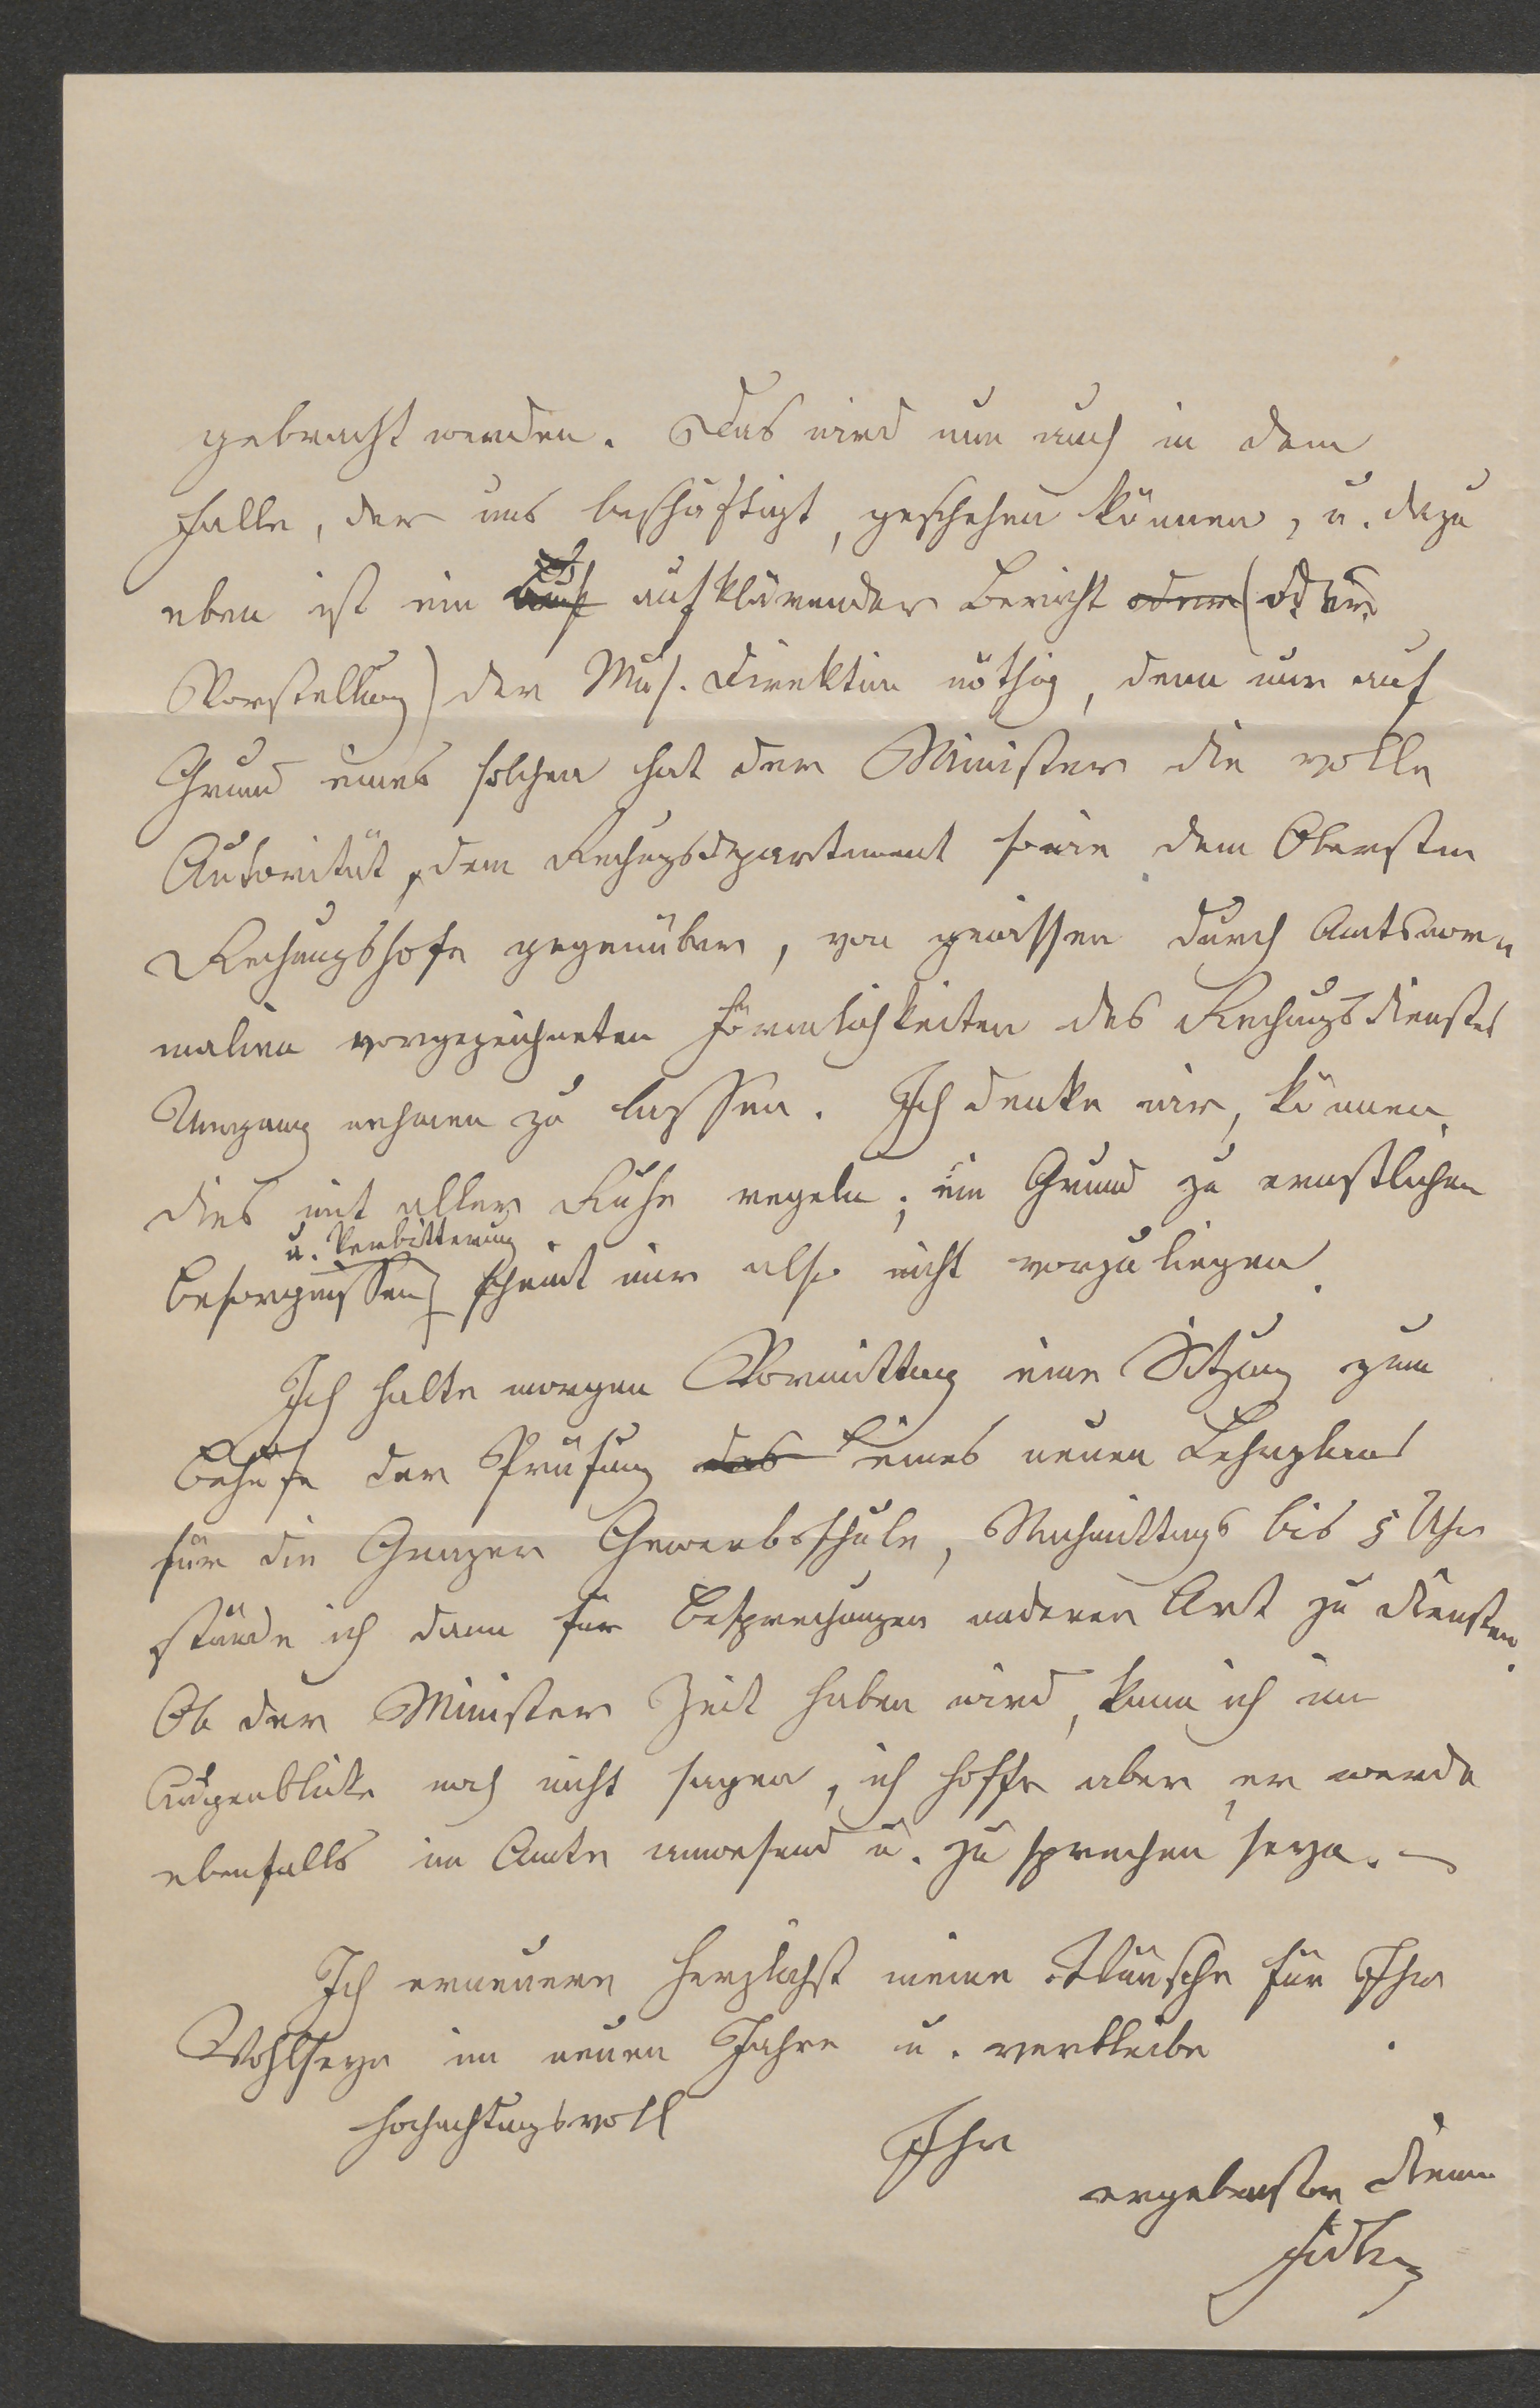 gebracht werden. Das wird nun auch in dem
Falle, der uns beschäftigt, geschehen können, u. dazu
eben ist ein aufklärender Bericht oder (od.
Vorstellung) der Mus. Direktion nöthig, denn nur auf
Grund eines solchen hat der Minister die volle
Autorität, dem Rechngsdepartement sowie dem Obersten
Rechnungshofe gegenüber, von gewissen durch Amtsnor-
malien vorgezeichneten Förmlichkeiten des Rechnungsdienstes
Umgang nehmen zu lassen. Ich denke wir, können
dies mit aller Ruhe regeln; ein Grund zu ernstlichen
u. Verbitterung
Besorgnissen scheint mir also nicht vorzuliegen.
Ich halte morgen Vormittag eine Sitzung zum
Behufe der Prüfung des eines neuen Lehrplans
für die Grazer Gewerbsschule, Nachmittags bis 5 Uhr
stünde ich dann für Besprechungen anderer Art zu Diensten.
Ob der Minister Zeit haben wird, kann ich im
Augenblicke noch nicht sagen, ich hoffe aber, er werde
ebenfalls im Amte anwesend u. zu sprechen seyn. –
Ich erneuere herzlichst meine Wünsche für Ihr
Wohlseyn im neuen Jahre u. verbleibe
hochachtungsvoll
Ihr
ergebenster Diener